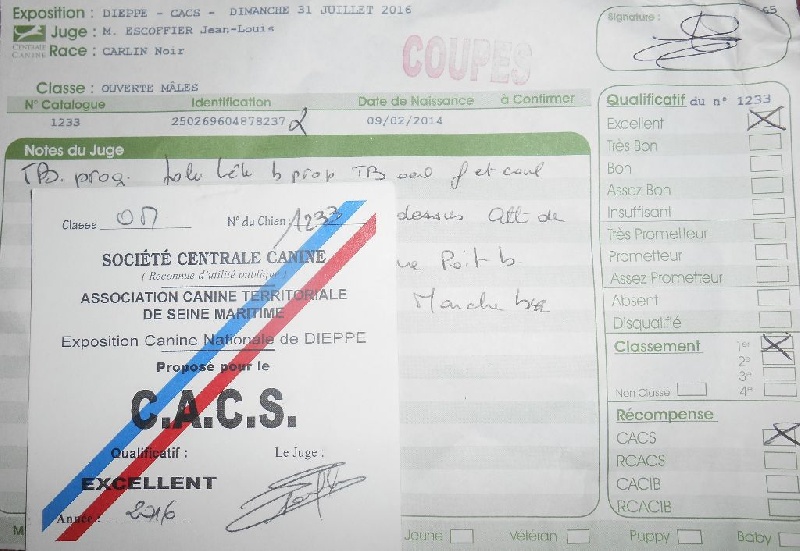 Exposition : DIEPPE - CACS - DIMANCHE 31 JUILLET 2016
Juge : M. ESCOFFIER Jean-Louis
Race : CARLIN Noir
CENTRALE CANINE
COUPES
Signature :
65
Classe : OUVERTE MÂLES
N° Catalogue Identification Date de Naissance à Confirmer
1233 250269604878237 09/02/2014
Notes du Juge
TB. prog. tête b prop TB et
dessus Att de
Poit b
Marche
Classe OM N° du Chien : 1233
SOCIÉTÉ CENTRALE CANINE
( Reconnue d'utilité publique )
ASSOCIATION CANINE TERRITORIALE
DE SEINE MARITIME
Exposition Canine Nationale de DIEPPE
Proposé pour le
C.A.C.S.
Qualificatif : Le Juge :
EXCELLENT
Année : 2016
Qualificatif du n° 1233
Excellent
Très Bon
Bon
Assez Bon
Insuffisant
Très Prometteur
Prometteur
Assez Prometteur
Absent
Disqualifié
Classement 1er
2e
3e
Non Classé 4e
Récompense
CACS
RCACS
CACIB
RCACIB
M Jeune Vétéran Puppy Baby